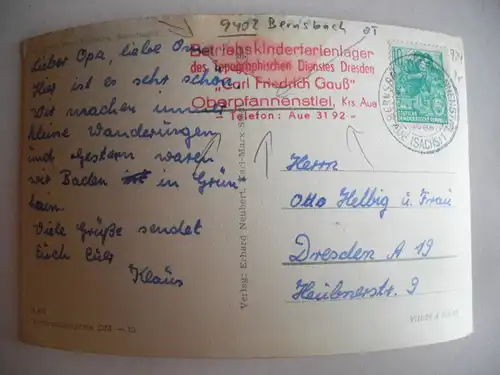 9402 Bernsbach OT
Betriebskinderferienlager
des Topographischen Dienstes Dresden
„Carl Friedrich Gauß"
Oberpfannenstiel, Krs. Aue
— Telefon: Aue 31 92 —
Lieber Opa, liebe Oma
Hier ist es seht schön.
Wir machen immer
kleine Wanderungen
und gestern waren
wir Baden in Grün-
hain.
Viele Grüße sendet
Euch Euer
Klaus
Verlag: Erhard Neubert, Karl-Marx-S
10
DEUTSCHE
(SACHS)
Herrn
Otto Helbig u. Frau
Dresden A 19
Heubnerstr. 9